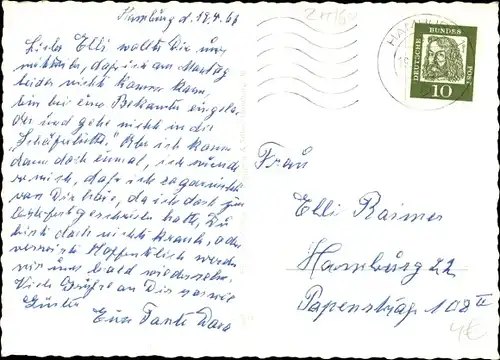 Hamburg d. 19.4.61
Liebe Elli wollte Dir nur
mitteilen, daß ich am Montag
leider nicht kommen kann,
bin bei eine Bekannte eingela-
den und gehe nicht in die
"Schäferhütte." Aber ich komme
dann doch einmal, ich wunde-
re mich, daß ich so garnichts
von Dir höre, da ich doch zum
Osterfest geschrieben hatte, Du
bist doch nicht krank, oder
verreist. Hoffentlich werden
wir uns bald wiedersehn.
Viele Grüße an Dir sowie
Günter
Eure Tante Dora
HAMBURG
DEUTSCHE BUNDESPOST
10
Frau
Elli Raimer
Hamburg 22
Papenstraße 108 II
4€